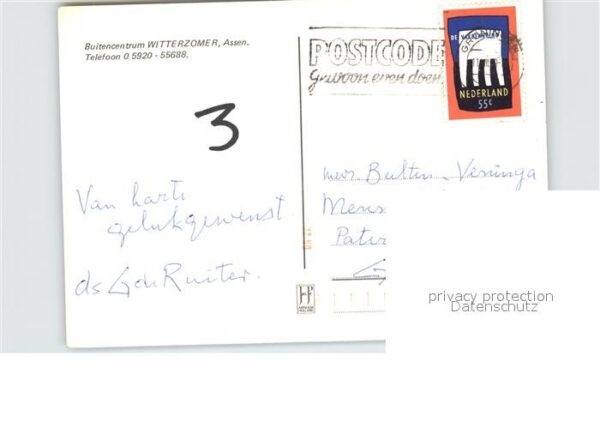 Buitencentrum WITTERZOMER, Assen.
Telefoon 0 5920 - 55688.
3
Van harte
gelukgewenst
ds G de Ruiter.
POSTCODE
Gewoon even doen.
NEDERLAND
55c
mevr Bulten - Veninga
privacy protection
Datenschutz